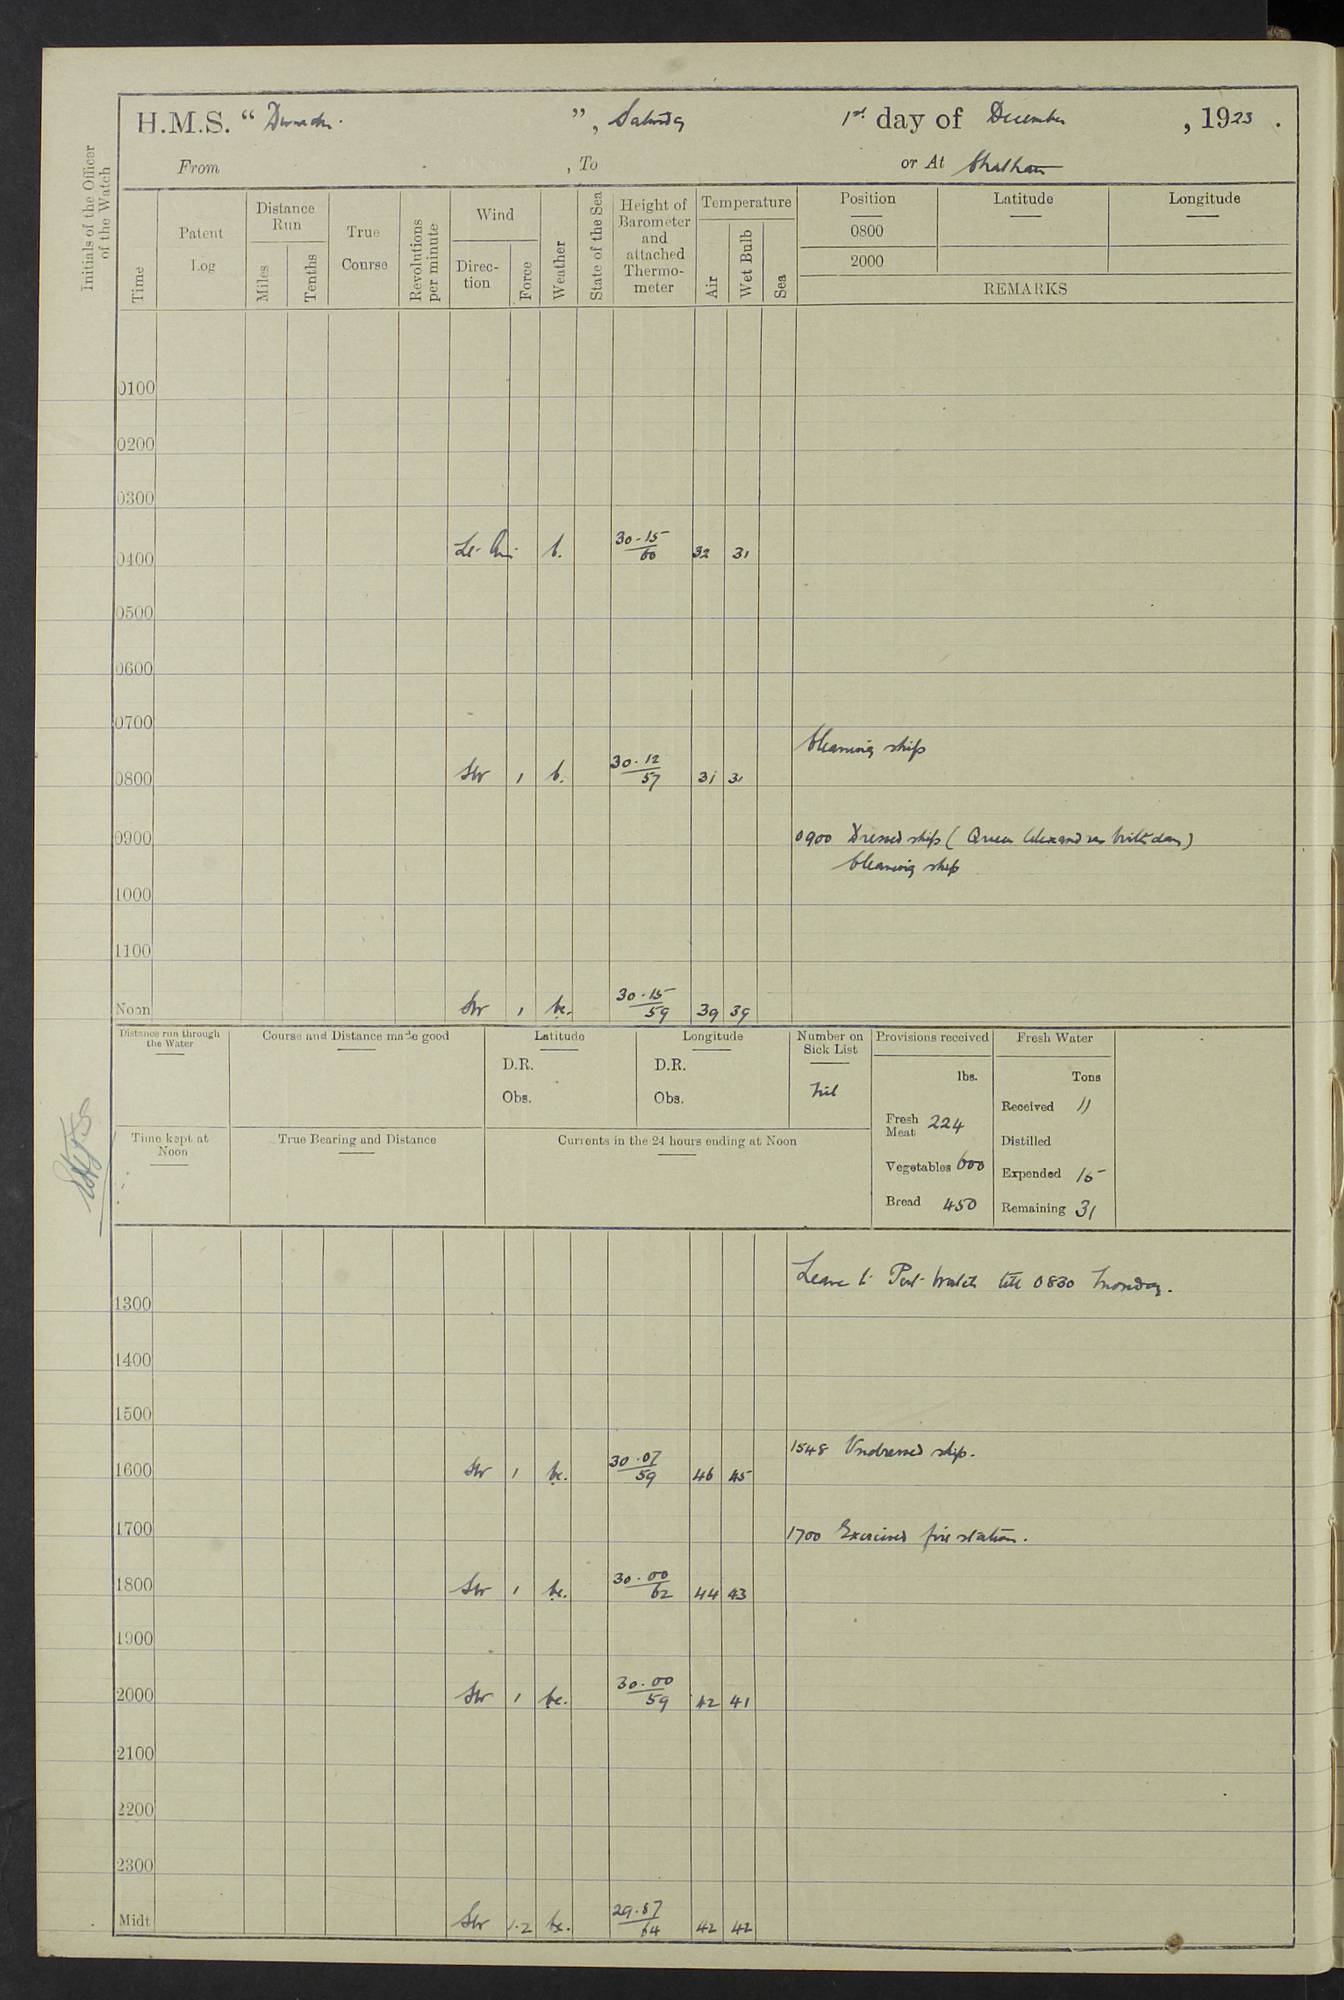 H.M.S. " ", Saturday 1st. day of December, 1923.
From , To or At Chatham
Initials of the Officer of the Watch
Time
Patent Log
Distance Run
Miles
Tenths
True Course
Revolutions per minute
Wind
Direction
Force
Weather
State of the Sea
Height of Barometer and attached Thermometer
Temperature
Air
Wet Bulb
Sea
Position Latitude Longitude
0800
2000
REMARKS
0100
0200
0300
0400 b. 30.15/60 32 31
0500
0600
0700
Cleaning ship
0800 SW 1 b. 30.12/57 31 31
0900 0900 Dressed ship (Queen Alexandras birthday)
Cleaning ship
1000
1100
Noon SW 1 bc. 30.15/59 39 39
Distance run through the Water
Course and Distance made good
Latitude
D.R.
Obs.
Longitude
D.R.
Obs.
Number on Sick List
Nil
Provisions received
lbs.
Fresh Meat 224
Vegetables 600
Bread 450
Fresh Water
Tons
Received 11
Distilled
Expended 15
Remaining 31
Time kept at Noon
True Bearing and Distance
Currents in the 24 hours ending at Noon
Leave to Port watch till 0830 Monday.
1300
1400
1500
1548 Undressed ship.
1600 SW 1 bc. 30.07/59 46 45
1700 1700 Exercised fire stations.
1800 SW 1 bc. 30.00/62 44 43
1900
2000 SW 1 bc. 30.00/59 42 41
2100
2200
2300
Midt SW 1.2 bc. 29.87/64 42 42